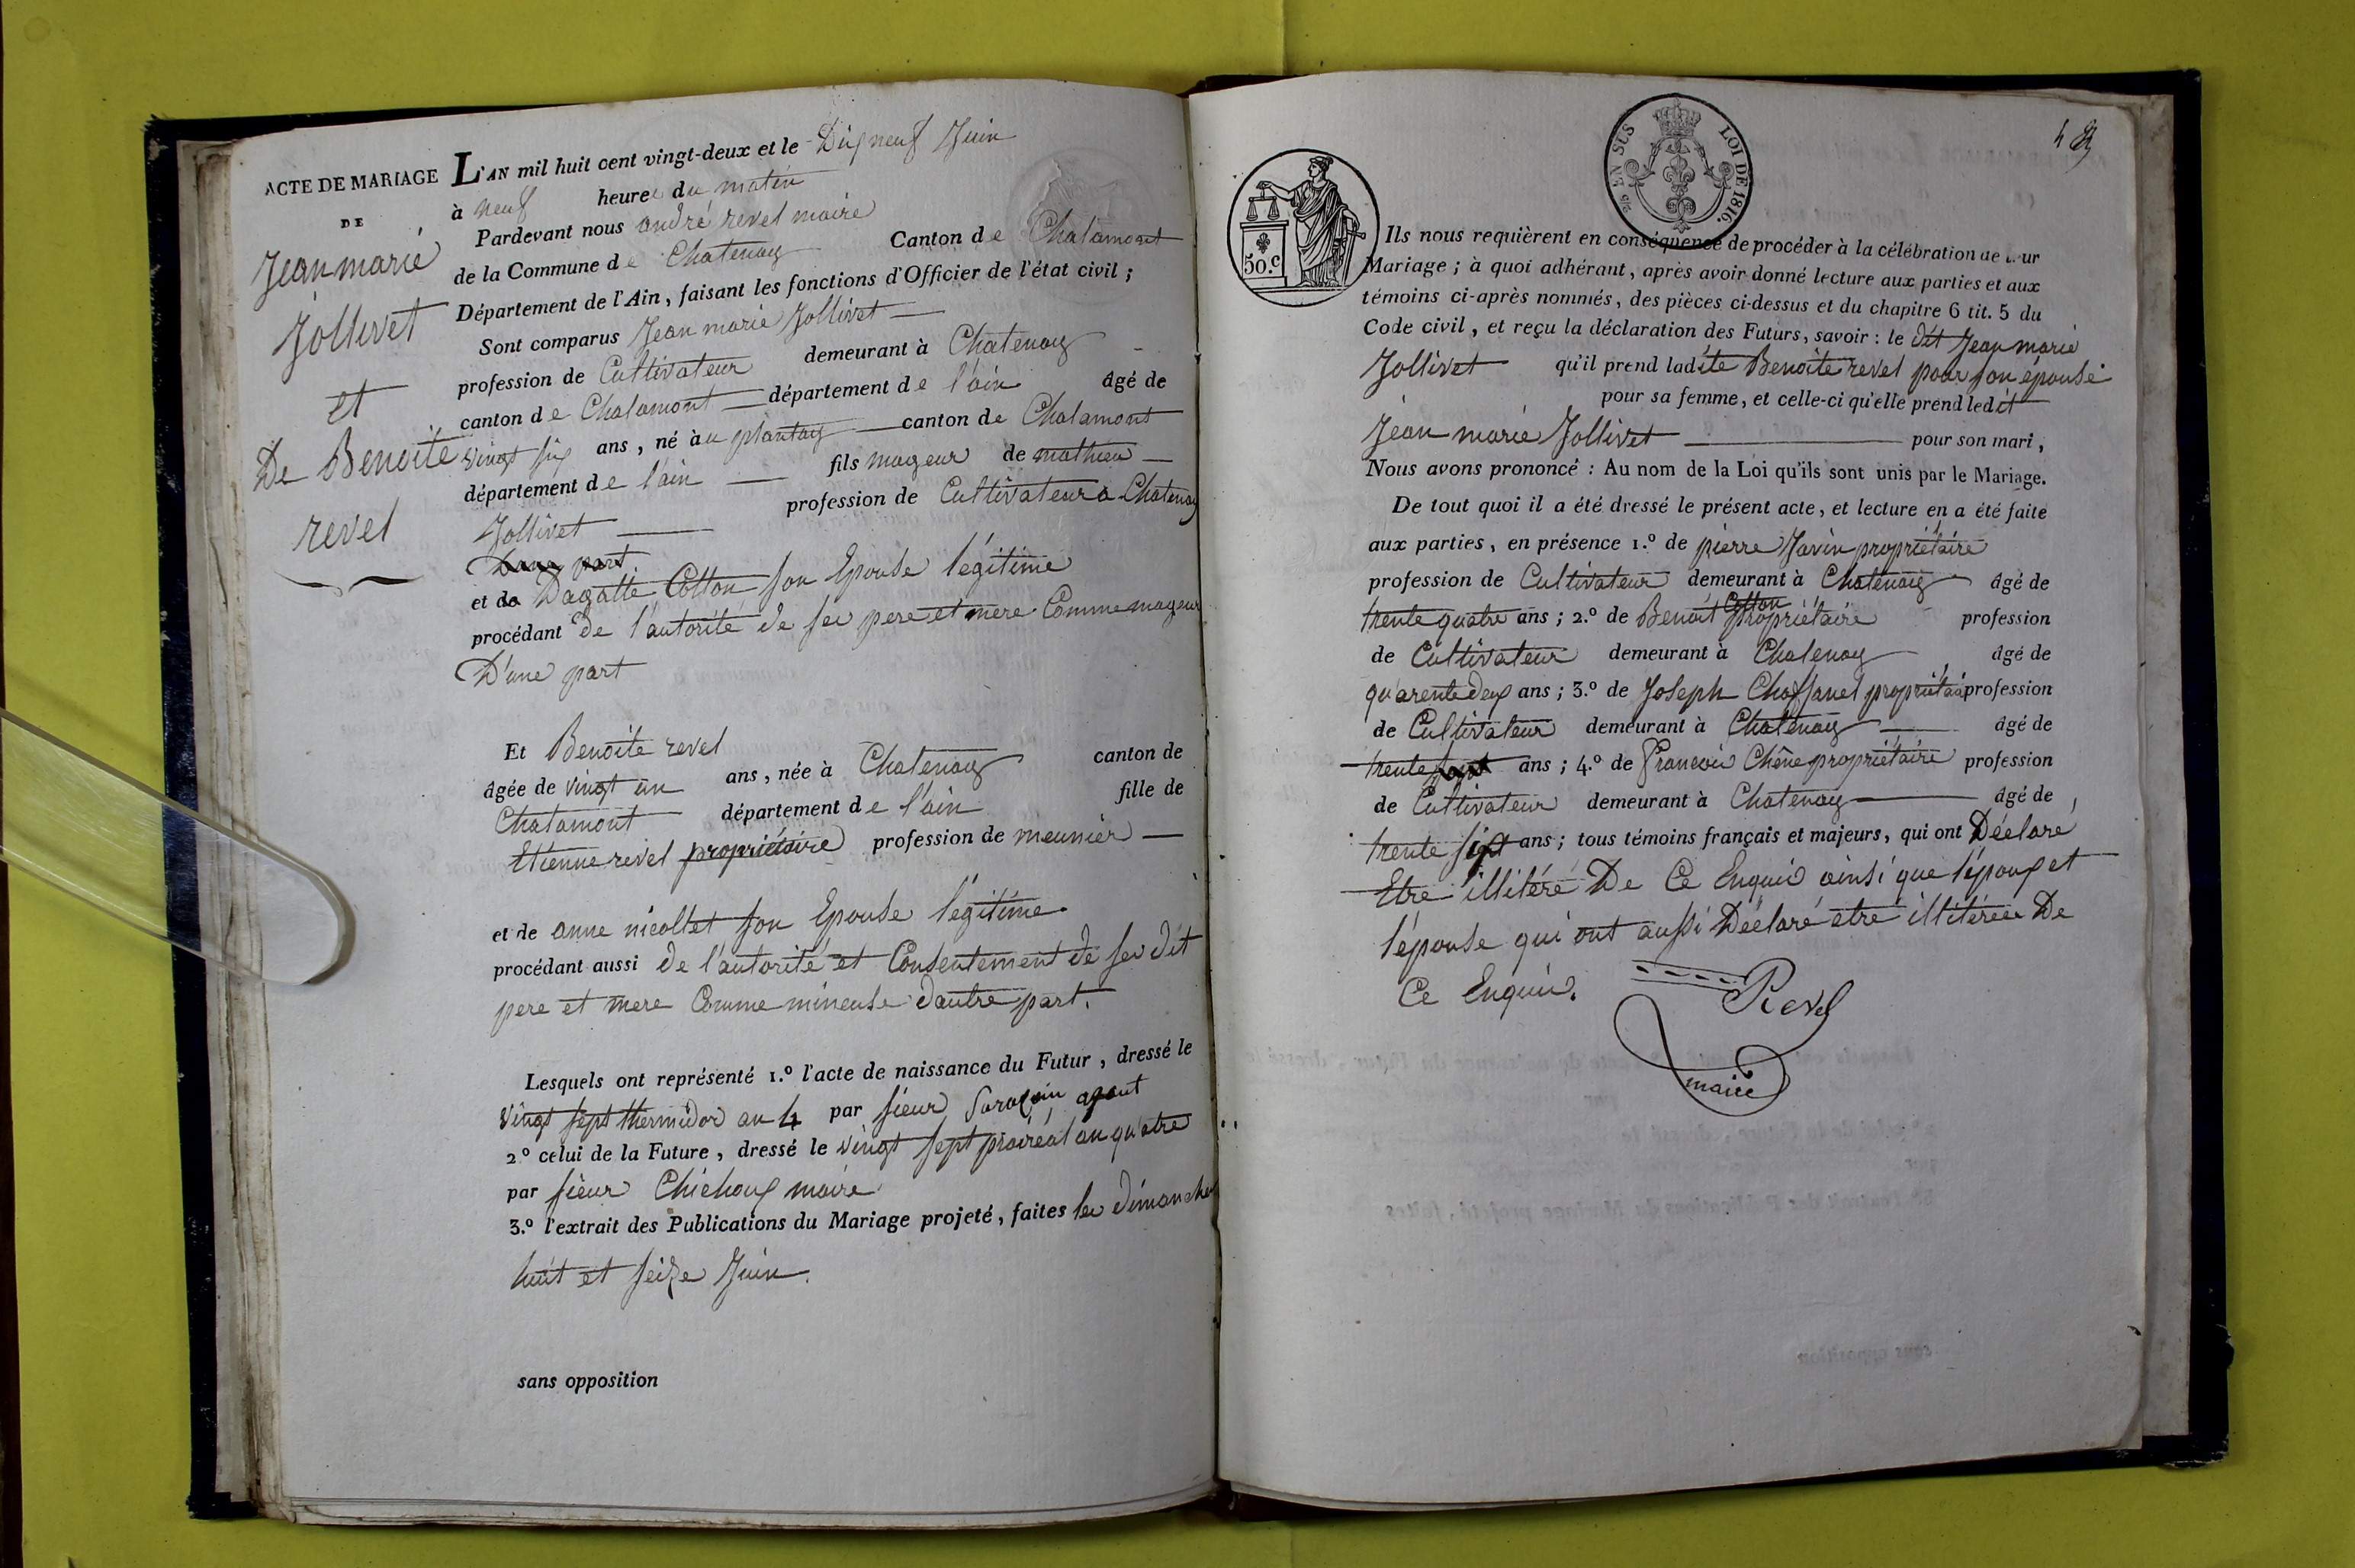 ACTE DE MARIAGE
DE
Jean marie
Jollivet
et
De Benoite
revel
L'AN mil huit cent vingt-deux et le Dix neuf Juin
à neuf heures du matin
Pardevant nous andré revel maire
de la Commune de Chatenay Canton de Chalamont
Département de l'Ain, faisant les fonctions d'Officier de l'état civil ;
Sont comparus Jean marie Jollivet
profession de Cultivateur demeurant à Chatenay
canton de Chalamont département de l'ain âgé de
vingt six ans, né au plantay canton de Chalamont
département de l'ain fils mageur de mathieu
Jollivet profession de Cultivateur a Chatenay
D'une part
et de Dagatte Cotton son Epouse légitime
procédant de l'autorité de ses pere et mere Comme mageur
D'une part
Et Benoite revel
âgée de vingt un ans, née à Chatenay canton de
Chalamont département de l'ain fille de
Etienne revel propriétaire profession de meunier
et de anne nicollet son Epouse légitime
procédant aussi de l'autorité et Consentement de ses dit
pere et mere Comme mineuse d'autre part.
Lesquels ont représenté 1.º l'acte de naissance du Futur, dressé le
vingt sept thermidor an 4 par sieur Sarazin agent
2.º celui de la Future, dressé le vingt sept prairéal an quatre
par sieur Chichoux maire
3.º l'extrait des Publications du Mariage projeté, faites les dimanches
huit et seize Juin.
sans opposition
50.c
5/6 EN SUS LOI DE 1816.
Ils nous requièrent en conséquence de procéder à la célébration de leur
Mariage ; à quoi adhérant, après avoir donné lecture aux parties et aux
témoins ci-après nommés, des pièces ci-dessus et du chapitre 6 tit. 5 du
Code civil, et reçu la déclaration des Futurs, savoir : le dit Jean marie
Jollivet qu'il prend ladite Benoite revel pour son épouse
pour sa femme, et celle-ci qu'elle prend ledit
Jean marie Jollivet pour son mari,
Nous avons prononcé : Au nom de la Loi qu'ils sont unis par le Mariage.
De tout quoi il a été dressé le présent acte, et lecture en a été faite
aux parties, en présence 1.º de pierre Javin propriétaire
profession de Cultivateur demeurant à Chatenay âgé de
trente quatre ans ; 2.º de Benoit Cotton propriétaire profession
de Cultivateur demeurant à Chatenay âgé de
quarente deux ans ; 3.º de Joseph Chaffanel propriétaire profession
de Cultivateur demeurant à Chatenay âgé de
trente sept ans ; 4.º de Francois Chêne propriétaire profession
de Cultivateur demeurant à Chatenay âgé de
trente sixt ans ; tous témoins français et majeurs, qui ont Déclaré
Etre illitéré De Ce Enquis ainsi que l'époux et
l'épouse qui ont aussi Déclaré etre illitérés De
Ce Enquis.
Revel
maire